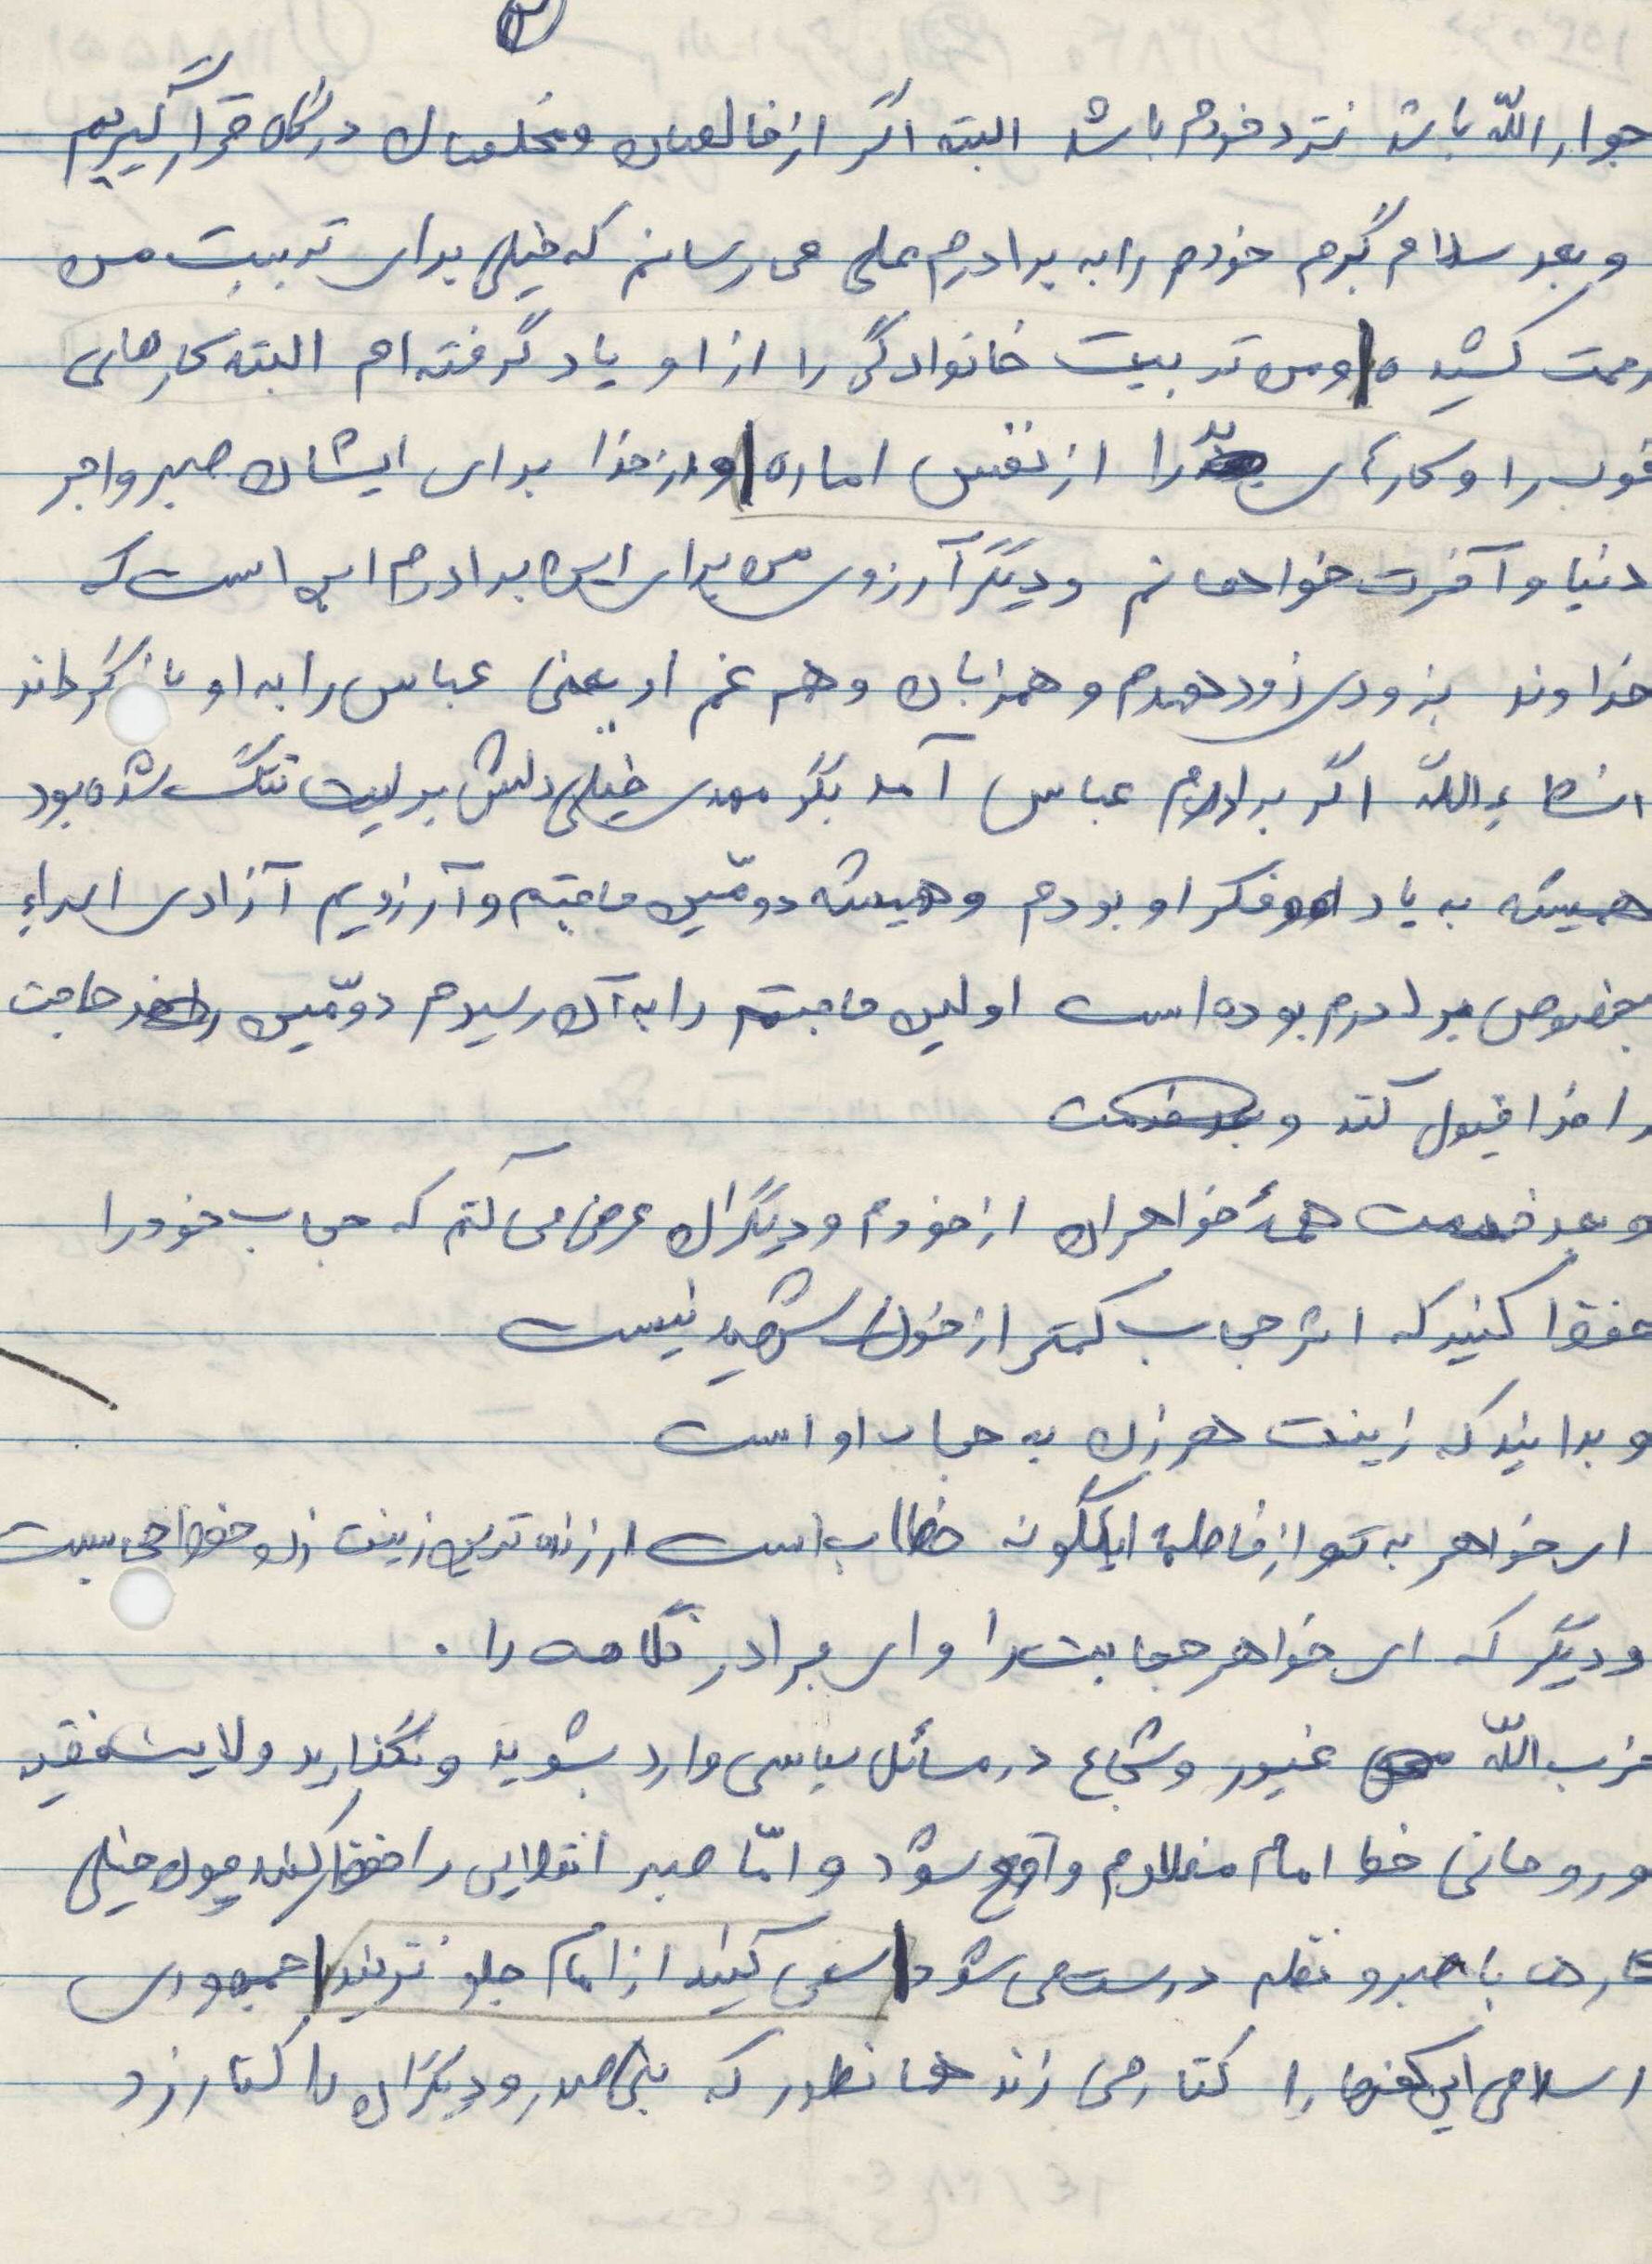 ۲
جوار الله باشد نزد خودم باشد البته اگر از خالصان و مخلصان درگاه قرار گیریم
و بعد سلام گرم خودم را به برادرم علی می رسانم که خیلی برای تربیت من
زحمت کشیده و من تربیت خانوادگی را از او یاد گرفته ام البته کارهای
خوب را و کارهای بد را از نفس اماره و از خدا برای ایشان صبر و اجر
دنیا و آخرت خواهانم و دیگر آرزوی من برای این برادرم این است که
خداوند بزودی زود همدم و همزبان و هم غم او یعنی عباس را به او بازگرداند
انشاءالله اگر برادرم عباس آمد بگو مهدی خیلی دلش برایت تنگ شده بود
همیشه به یاد او و فکر او بودم و همیشه دومّین حاجتم و آرزویم آزادی اسراء
بخصوص برادرم بوده است اولین حاجتم را به آن رسیدم دومّین حاجت
را خدا قبول کند و بعد خدمت
و بعد خدمت همهٔ خواهران از خودم و دیگران عرض می کنم که حجاب خود را
حفظ کنید که اثر حجاب کمتر از خون شهید نیست
و بدانید که زینت هر زن به حجاب او است
ای خواهر به تو از فاطمه اینگونه خطاب است ارزنده ترین زینت زن حفظ حجاب است
و دیگر که ای خواهر حجابت را و ای برادر نگاهت را .
حزب الله غیور و شجاع در مسائل سیاسی وارد بشوید و نگذارید ولایت فقیه
و روحانی خط امام مظلوم واقع شود و امّا صبر انقلابی را حفظ کنید چون خیلی
کارها با صبر و نظم درست می شود سعی کنید از امام جلو نزنید جمهوری
اسلامی این را کنار می زند همانطور که بنی صدر و دیگران را کنار زد